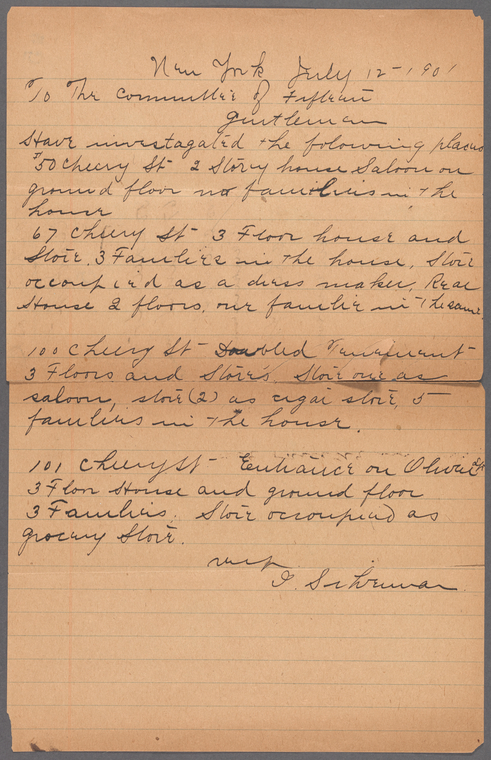 New York July 12-1901
To The Committee of Fifteen
Gentleman
Have investagated the folowing places
50 Cheery St 2 Storey house Saloon on
ground floor no families in the
house
67 Cheery St 3 Floor house and
Store. 3 Families in the house. Store
occoupied as a dress maker. Rear
House 2 floors. one familie in the same.
100 Cheery St Doubled Tenement
3 Floors and Stores. Store one as
saloon, store (2) as cigar store, 5
families in the house.
101 Cheery St Entrance on Oliver St
3 Flor House and ground floor
3 Families. Store occoupied as
grocery Store.